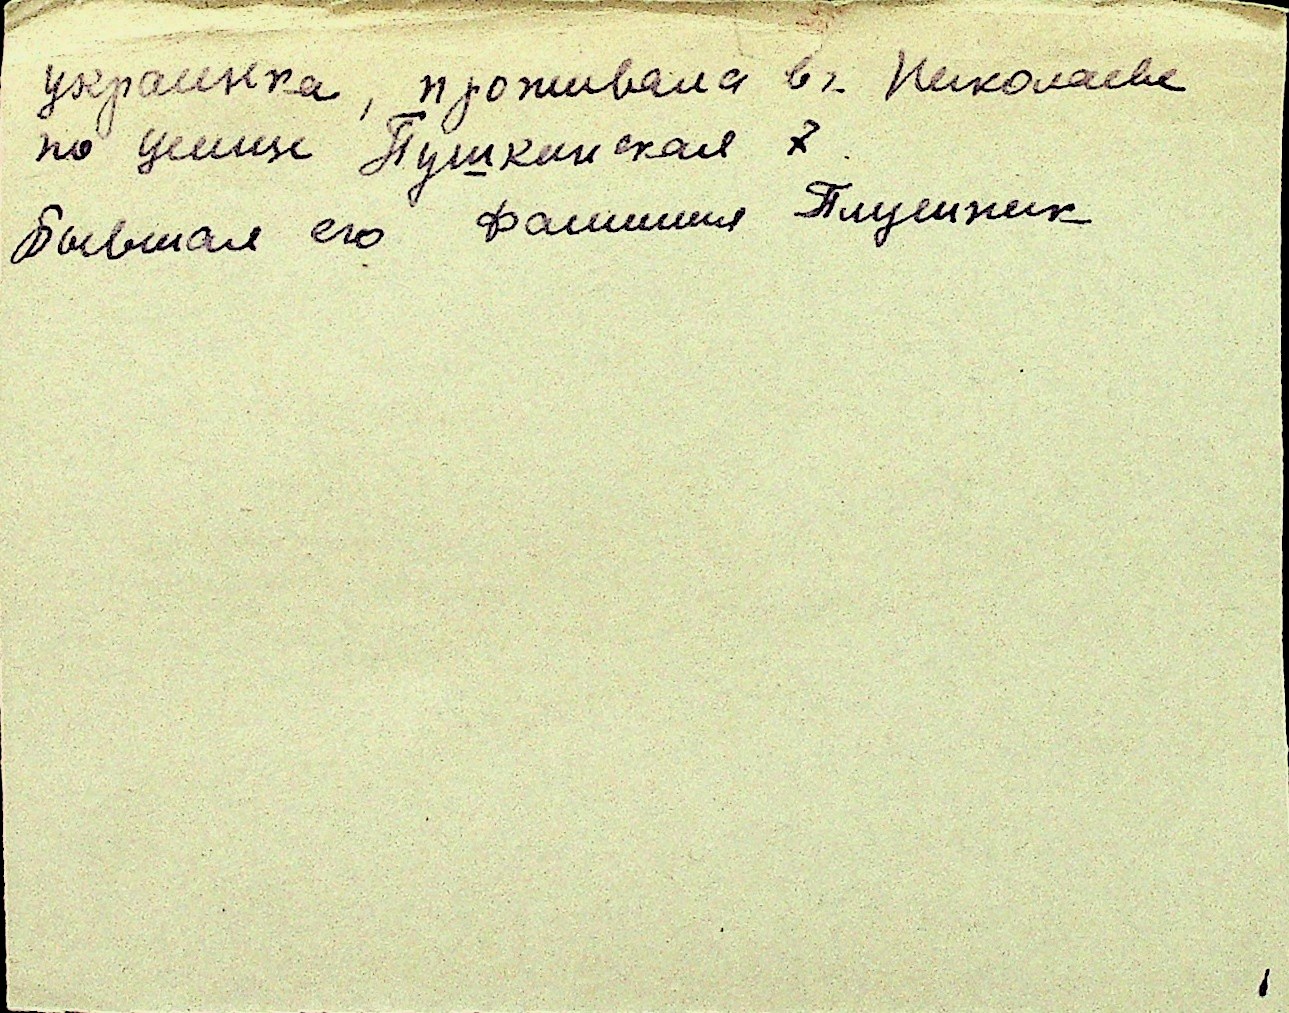 украинка, проживала в г. Николаеве
по улице Пушкинская 7.
Бывшая его фамилия